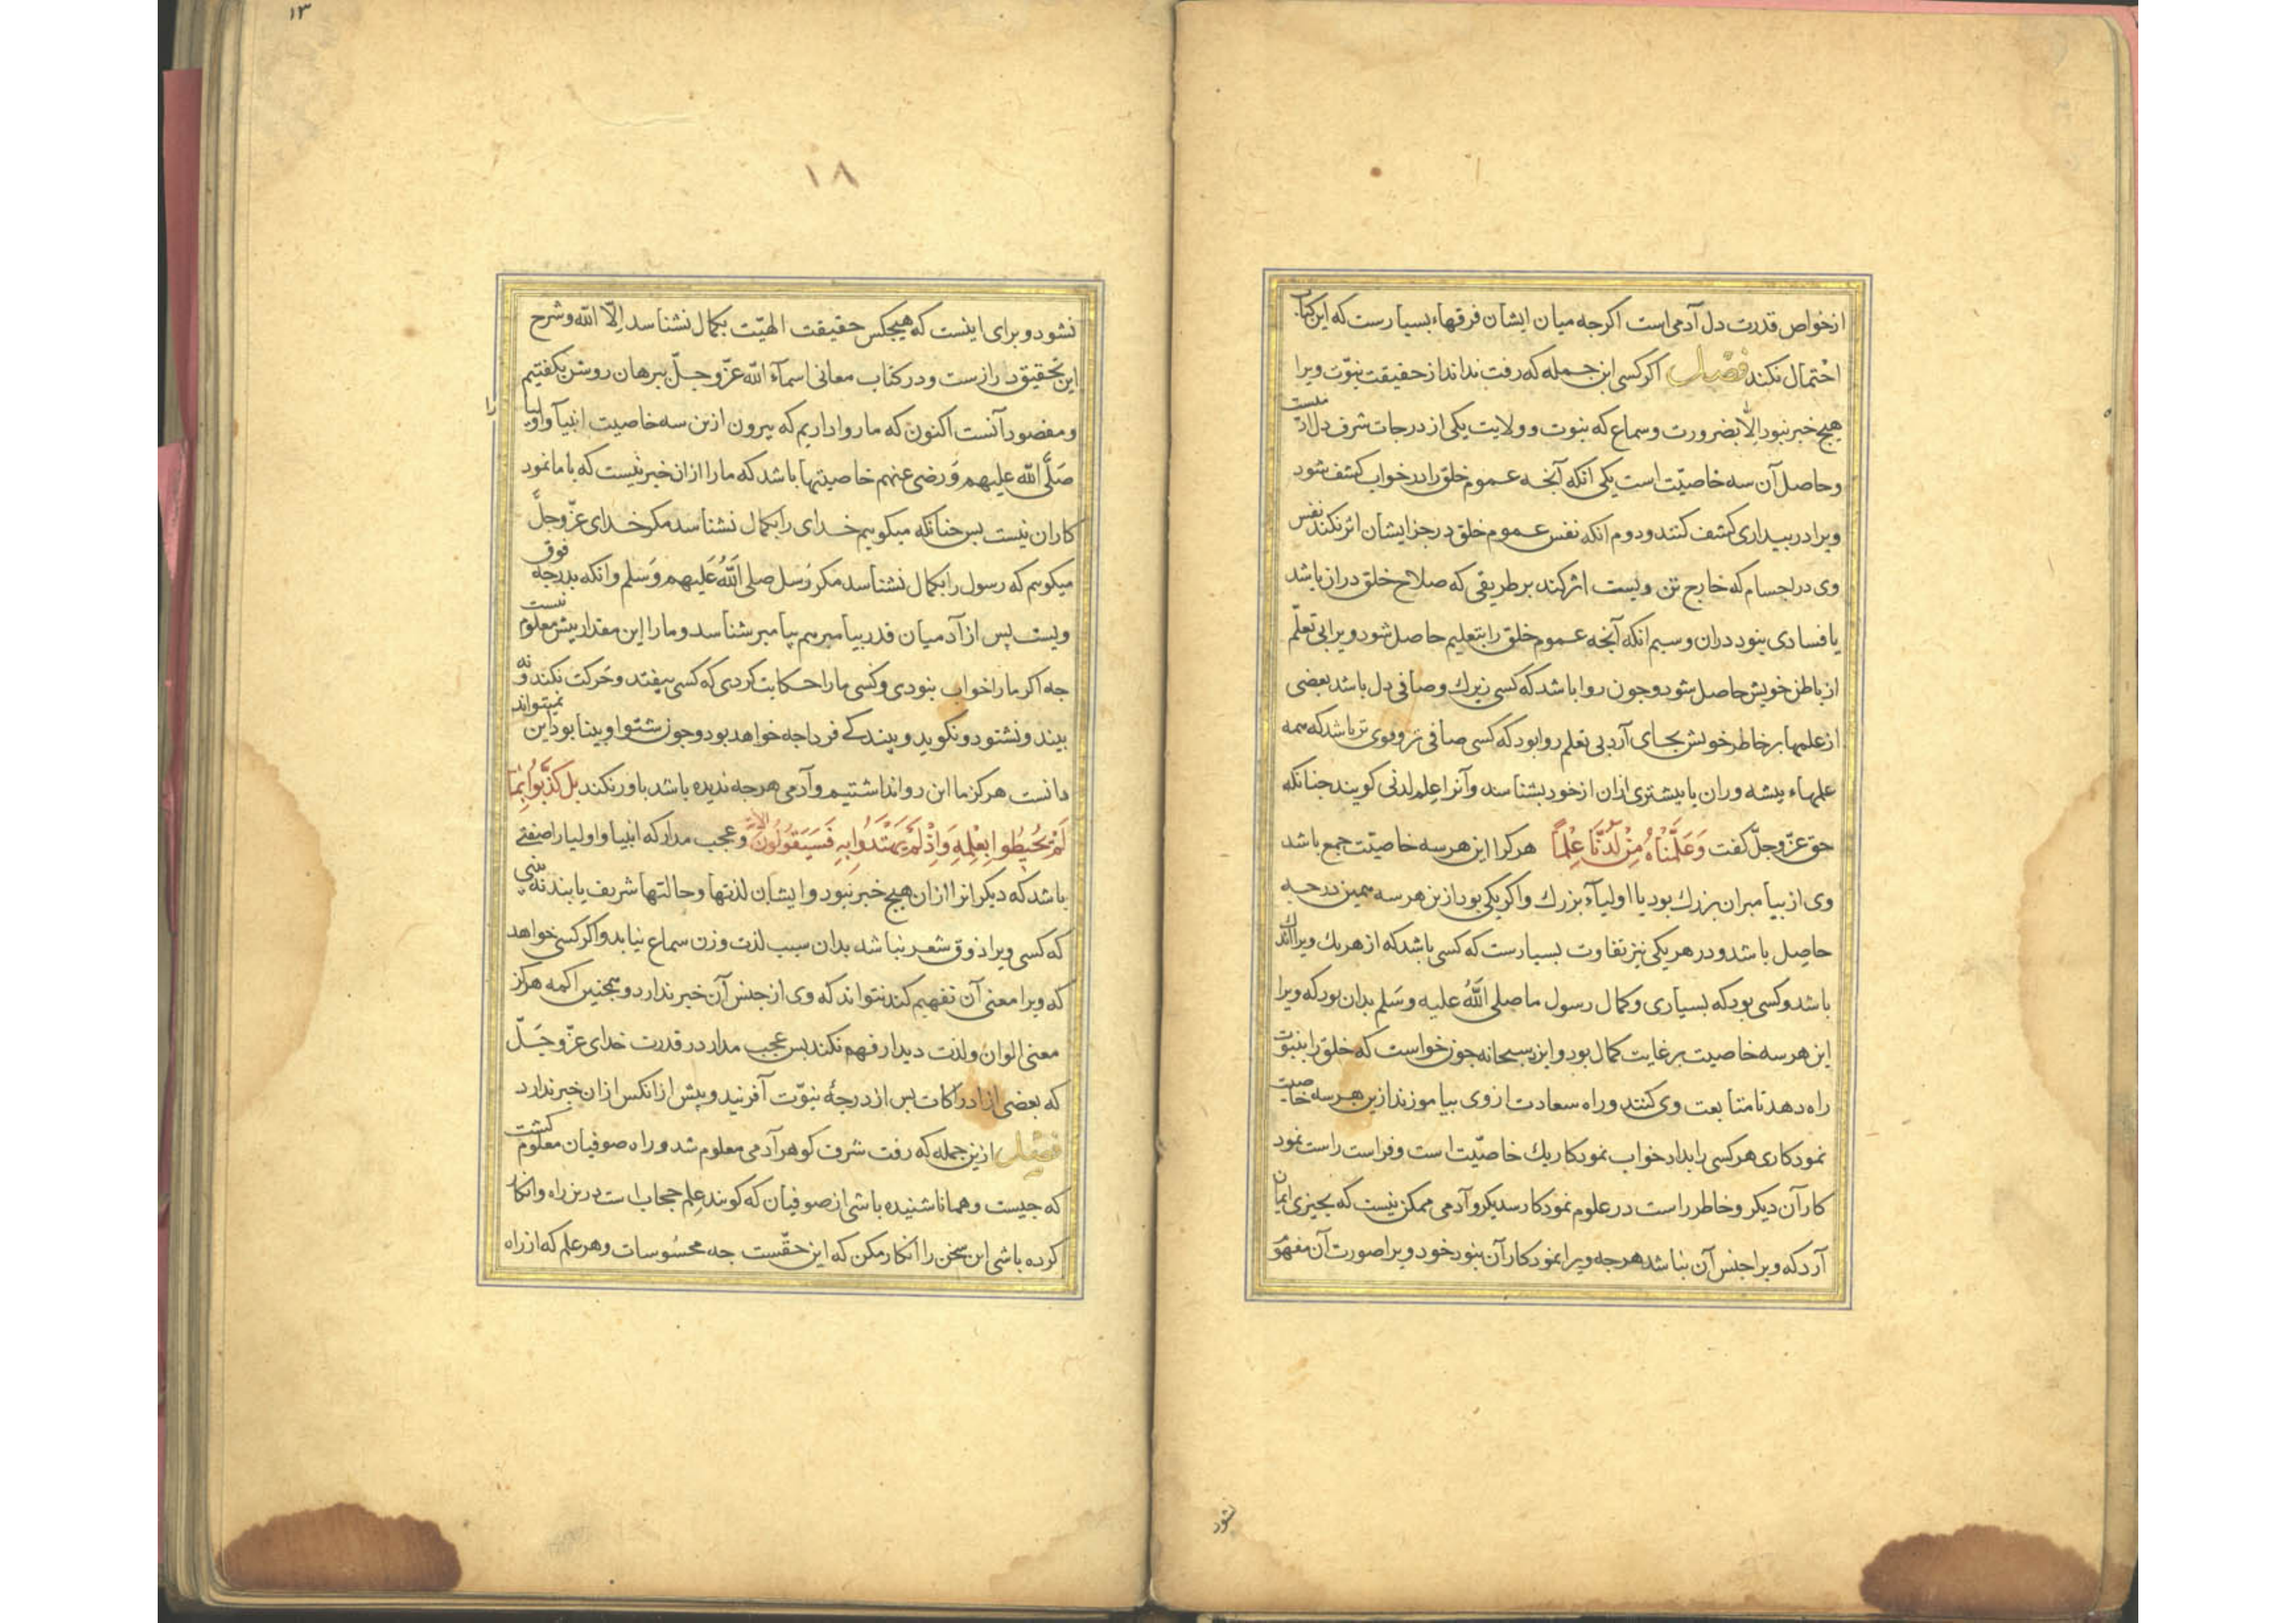 از خواص قدرت دل آدمی است اکرجه میان ایشان فرقهاء بسیارست که این کتاب
احتمال نکند فصل اکر کسی این جمله که رفت نداند از حقیقت نبوّت ویرا
هیچ خبر نبود الّا بضرورت و سماع که نبوت و ولایت یکی از درجات شرف دل آدمیست
و حاصل آن سه خاصیّت است یکی انکه آنجه عموم خلق را در خواب کشف شود
ویرا در بیداری کشف کنند و دوم انکه نفس عموم خلق در جز ایشان اثر نکند نفس
وی در اجسام که خارج تن ویست اثر کند بر طریقی که صلاح خلق در ان باشد
یا فسادی نبود دران و سیم انکه آنجه عموم خلق را بتعلیم حاصل شود ویرا بی تعلّم
از باطن خویش حاصل شود و جون روا باشد که کسی زیرك و صافی دل باشد بعضی
از علمها بر خاطر خویش بجای آرد بی تعلم روا بود که کسی صافی تر و قوی تر باشد که همه
علمهاء بیشه وران یا بیشتری ازان از خود بشناسد و آنرا علم لدنی کویند جنانکه
حق عزّ و جلّ کفت وَعَلَّمْنَاهُ مِنْ لَدُنَّا عِلْمًا هرکرا این هر سه خاصیت جمع باشد
وی از بیامبران بزرك بود یا اولیآء بزرك و اکر یکی بود ازین هر سه همین درجه
حاصل باشد و در هر یکی نیز تفاوت بسیارست که کسی باشد که از هر یك ویرا اندك
باشد و کسی بود که بسیاری و کمال رسول ما صلی اللّٰه علیه وسَلم بدان بود که ویرا
این هر سه خاصیت بر غایت کمال بود و ایزد سبحانه جون خواست که خلق را بنبوت
راه دهد تا متابعت وی کنند و راه سعادت ازوی بیاموزند ازین هر سه خاصیت
نمودکاری هر کسی را بداد خواب نمودکار یك خاصیّت است و فراست راست نمود
کار آن دیکر و خاطر راست در علوم نمودکار سدیکر و آدمی ممکن نیست که بجیزی ایمان
آرد که ویرا جنس آن نباشد هر جه ویرا نمودکار آن نبود خود ویرا صورت آن مفهوم
نشود
۱۳
۱۸
نشود و برای اینست که هیجکس حقیقت الهیّت بکمال نشناسد اِلّا اللّٰه و شرح
این تحقیق درازست و در کتاب معانی اسمآء اللّٰه عزّ و جلّ ببرهان روشن بکفتیم
و مقصود آنست اکنون که ما روا داریم که بیرون ازین سه خاصیت انبیآ و اولیا
را
صَلَّی اللّٰه علیهم وَ رضی عنهم خاصیتها باشد که ما را ازان خبر نیست که با ما نمود
کاران نیست بس جنانکه میکوییم خدای را بکمال نشناسد مکر خدای عزّ و جلّ
میکویم که رسول را بکمال نشناسد مکر رَسل صلی اللّٰهُ عَلیهم وَسلم و انکه بدرجه فوق
ویست پس از آدمیان قدر بیامبر هم پیامبر شناسد و ما را این مقدار بیش معلوم نیست
جه اکر ما را خواب نبودی و کسی ما را حکایت کردی که کسی بیفتد و حرکت نکند و نه
بیند و نشنود و نکوید و بیند که فردا جه خواهد بود و جون شنوا و بینا بود این نمیتواند
دانست هرکز ما این روا نداشتیم و آدمی هر جه ندیده باشد باور نکند بل کَذَّبُوا بِمَا
لَمْ یُحیطُوا بِعِلْمِهِ وَاِذْ لَمْ یَهْتَدُوا بِهِ فَسَیَقُولُونَ الآیه و عجب مدار که انبیا و اولیا را صفتی
باشد که دیکرانرا ازان هیچ خبر نبود و ایشان لذتها و حالتها شریف یابند نه بینی
که کسی ویرا ذوق شعر نباشد بدان سبب لذت وزن سماع نیابد و اکر کسی خواهد
که ویرا معنی آن تفهیم کند نتواند که وی از جنس آن خبر ندارد و همجنین اکمه هرکز
معنی الوان و لذت دیدار فهم نکند بس عجب مدار در قدرت خدای عزّ و جَلّ
که بعضی از ادراکات بس از درجهٔ نبوّت آفریند و پیش از انکس ازان خبر ندارد
فصل ازین جمله که رفت شرف کوهر آدمی معلوم شد و راه صوفیان معلوم کشت
که جیست و همانا شنیده باشی از صوفیان که کویند عِلم حجاب است درین راه و انکار
کرده باشی این سخن را انکار مکن که این حقّست جه محسُوسات و هر علم که از راه